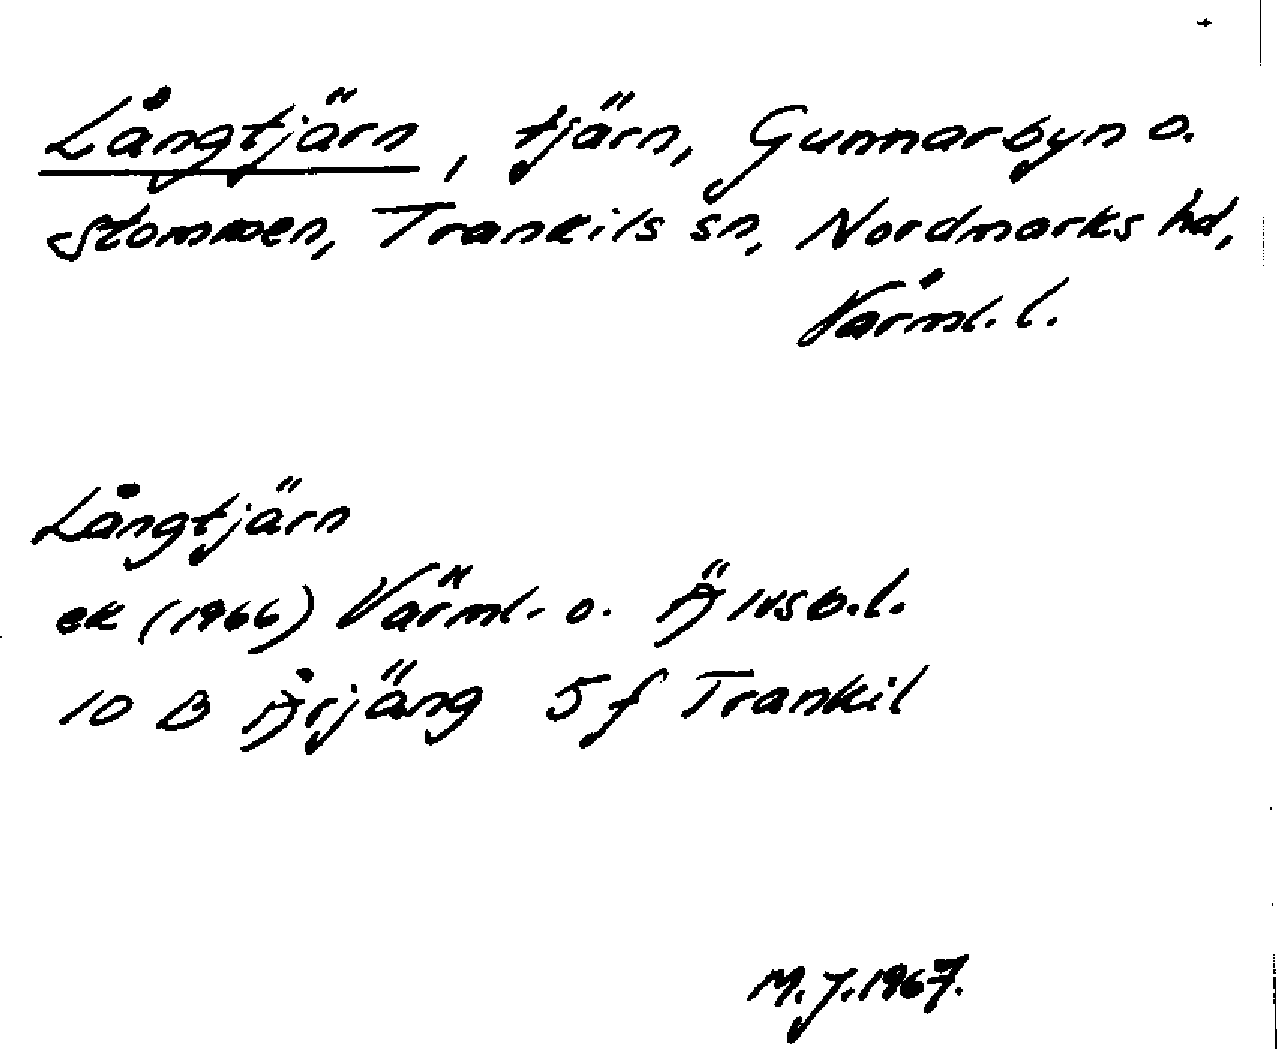 Långtjärn, tjärn, Gunnarbyn o.
Stommen, Trankils sn, Nordmarks hd,
Värml. l.
Långtjärn
ek (1966) Värml.- o. Älvsb.l.
10 B Årjäng 5 f Trankil
M.J.1967.